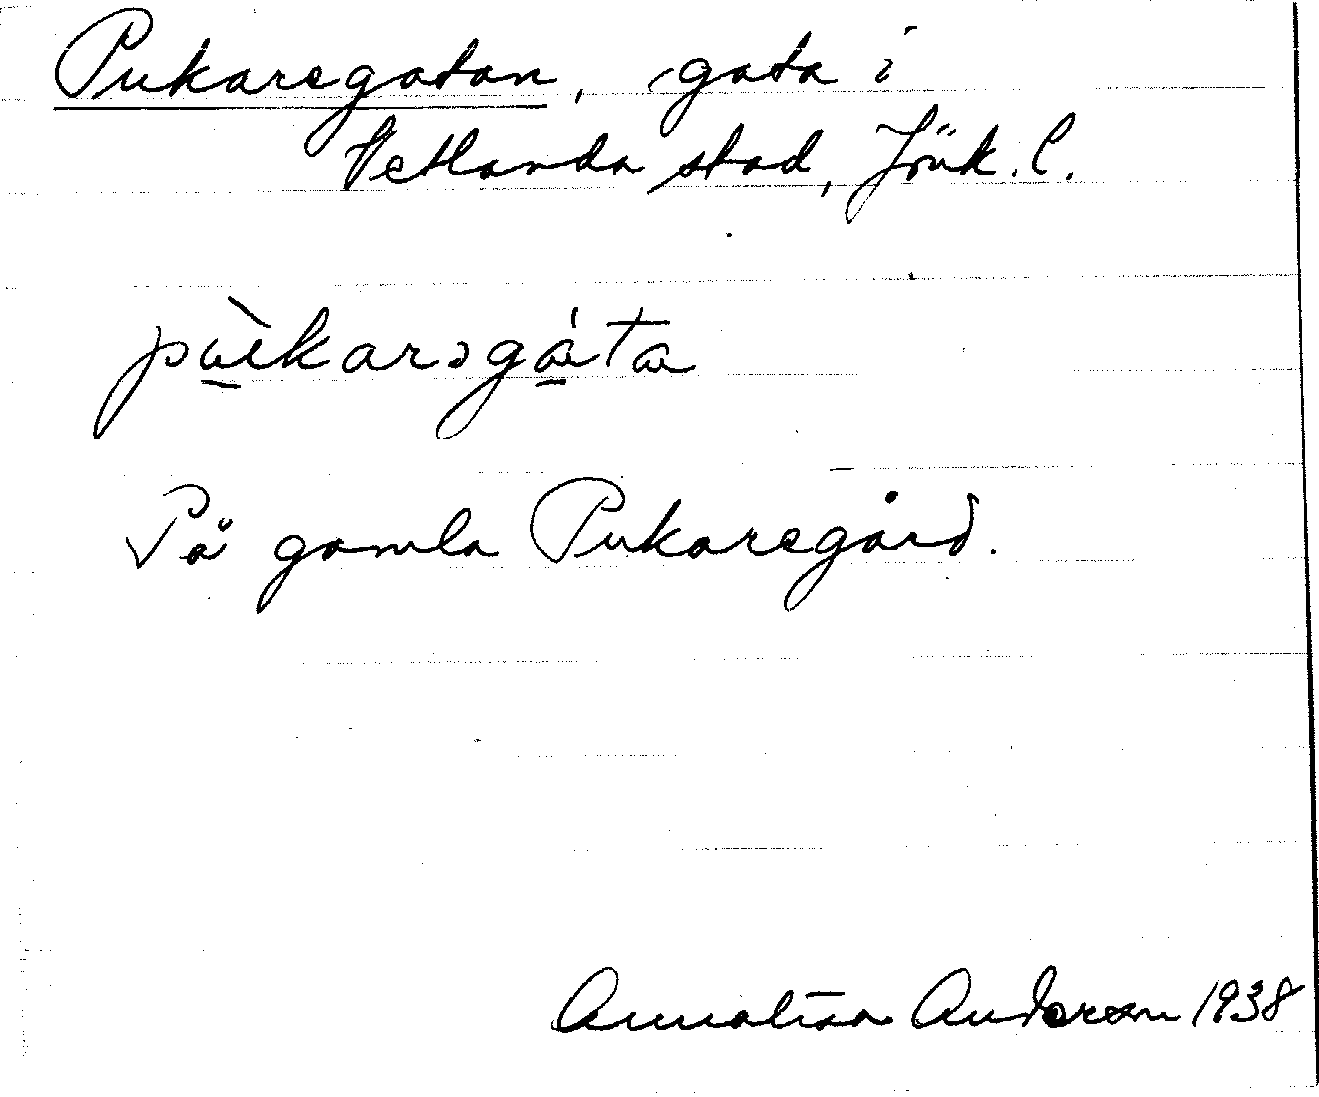 Pukaregatan, gata i
Vetlanda stad, Jönk. l.
På gamla Pukaregård.
Annalisa Anderson 1938